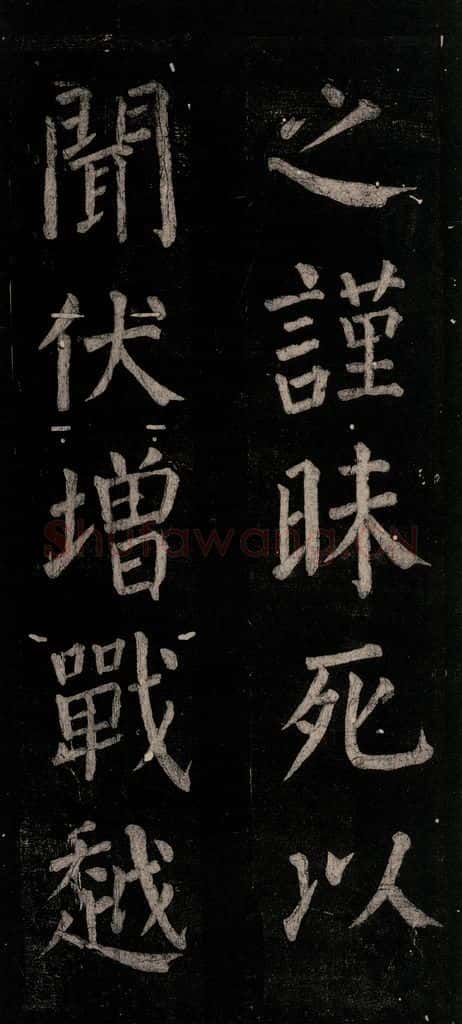 之謹昧死以
聞伏增戰越
Shufawang.CN